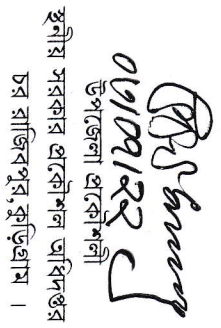 উপজেলা প্রকৌশলী
স্থানীয় সরকার প্রকৌশল অধিদপ্তর
চর রাজিবপুর, কুড়িগ্রাম ।